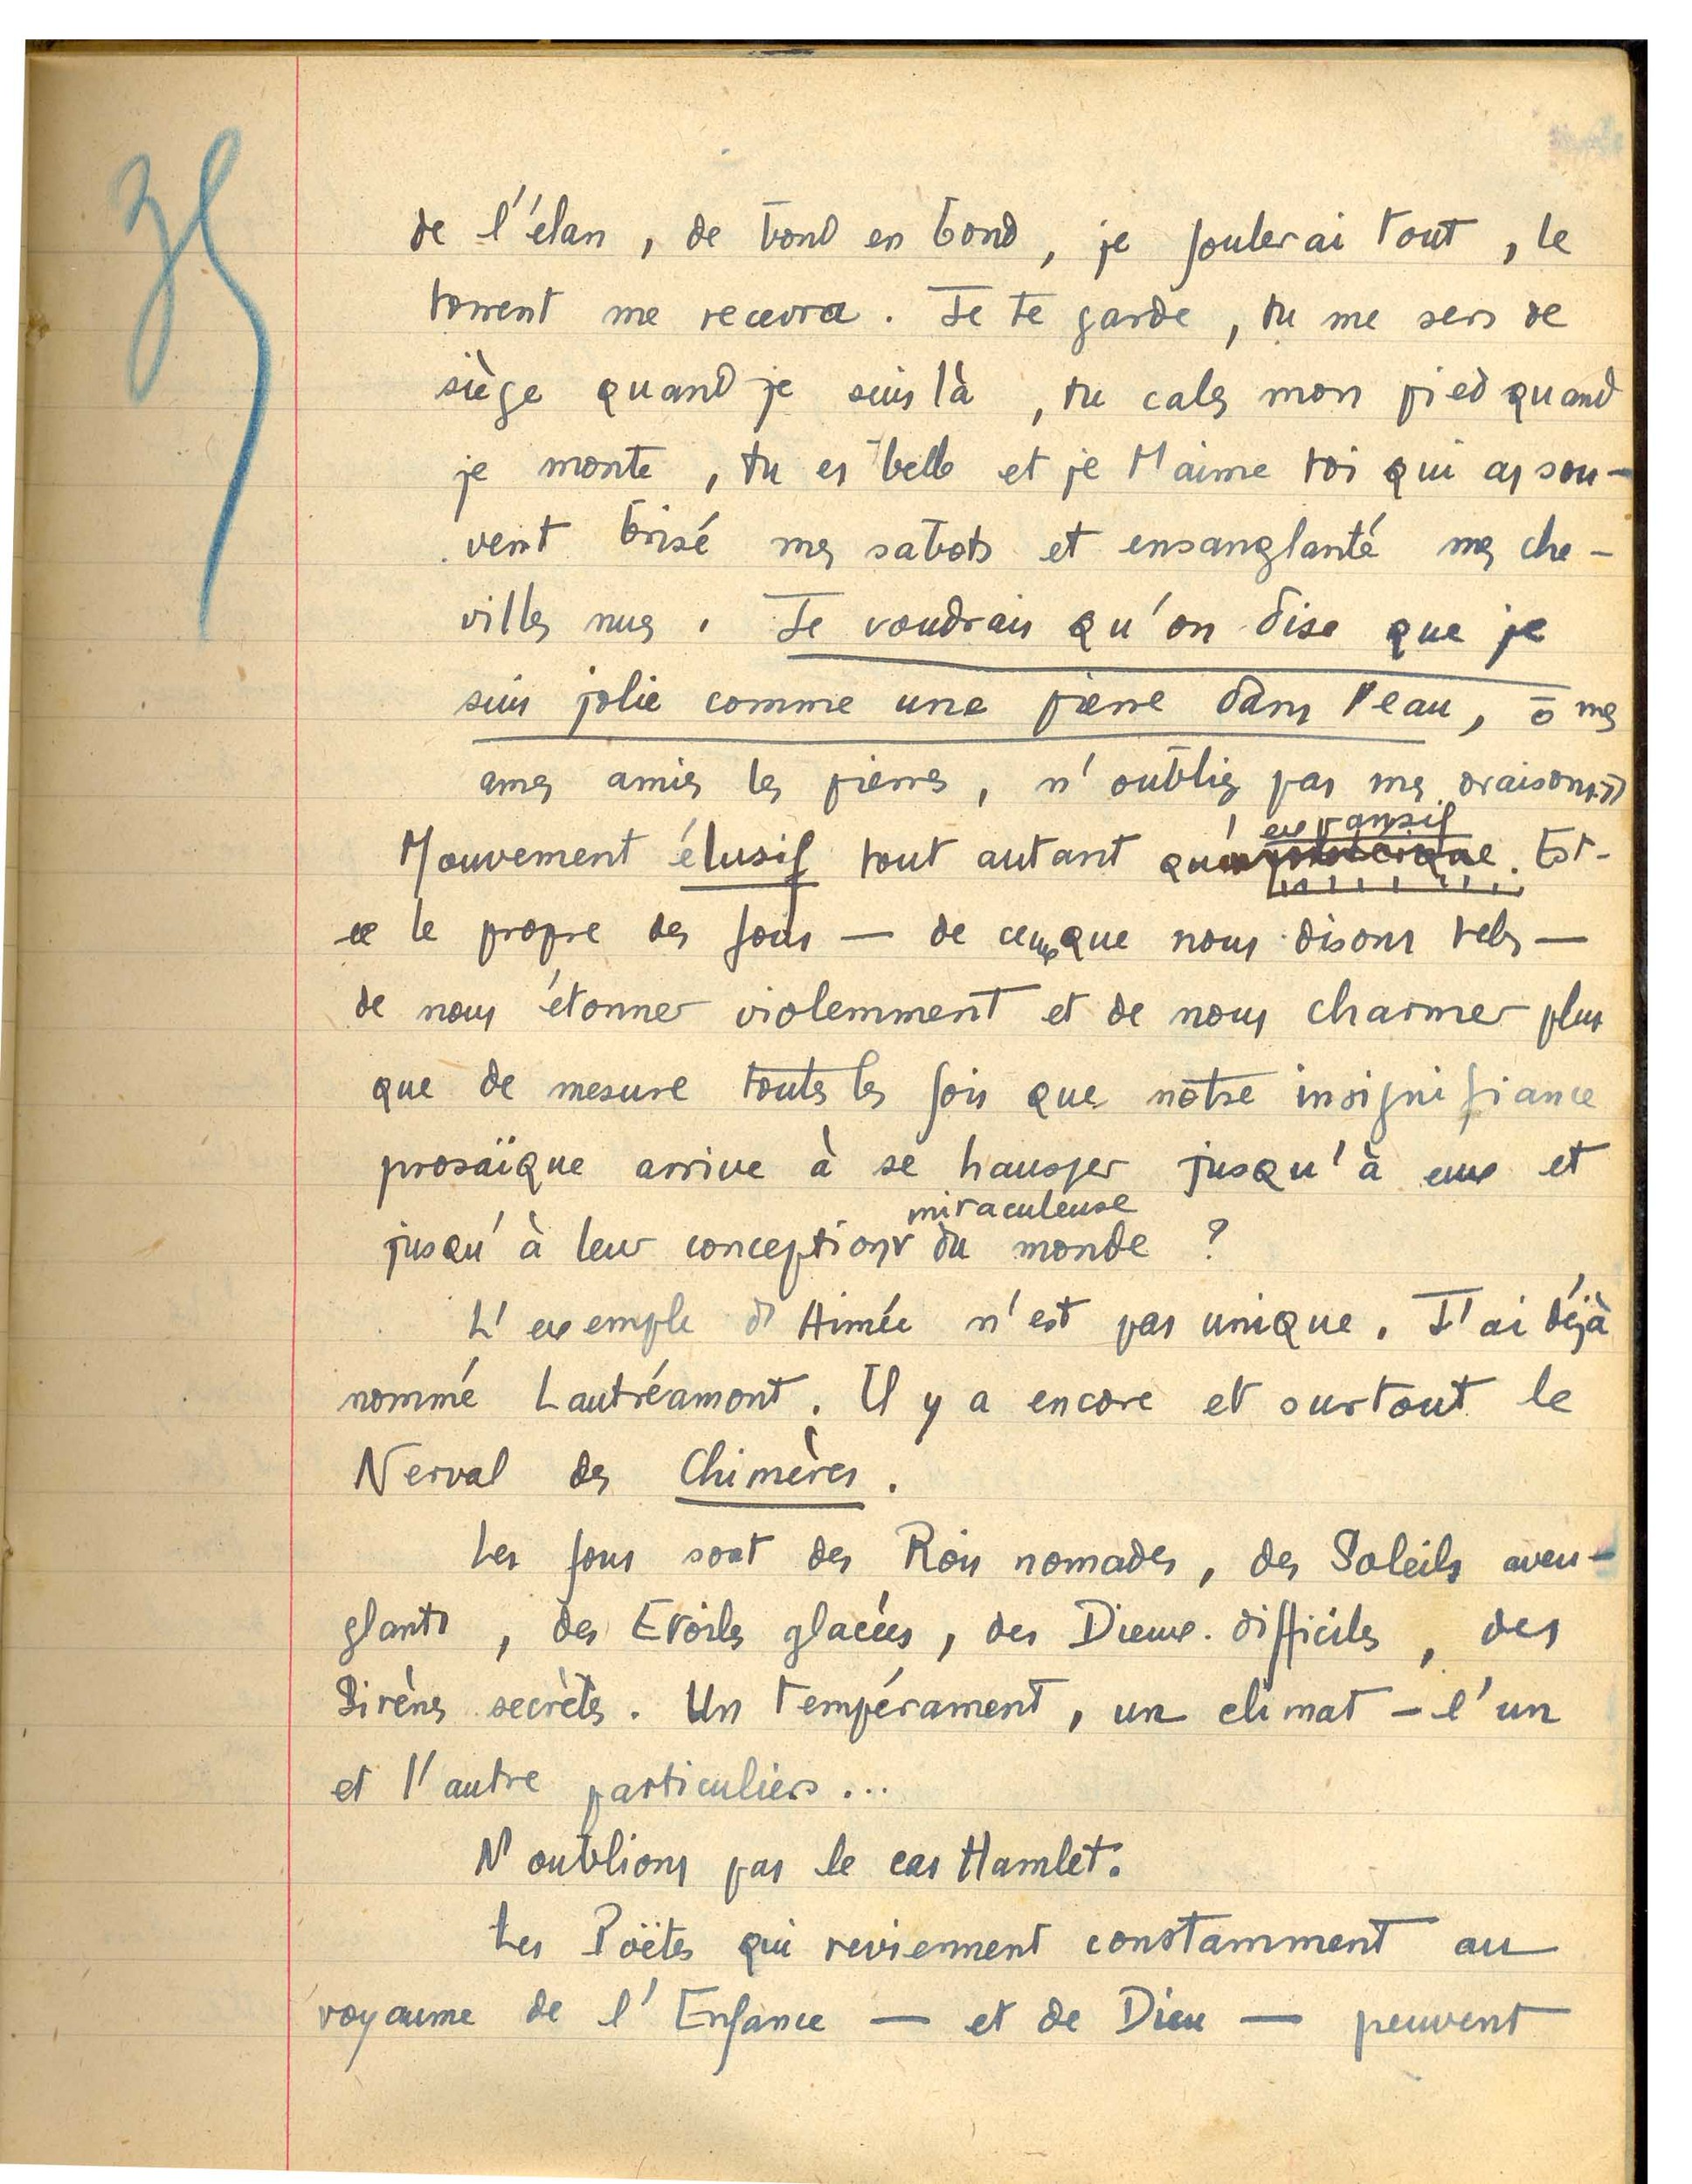 35
de l'élan, de bond en bond, je foulerai tout, le
torrent me recevra. Je te garde, tu me sers de
siège quand je suis là, tu cales mon pied quand
je monte, tu es belle et je t'aime toi qui as sou-
vent brisé mes sabots et ensanglanté mes che-
villes nues. Je voudrais qu'on dise que je
suis jolie comme une pierre dans l'eau, ô mes
ames amies les pierres, n'oubliez pas mes oraisons »
expansif
Mouvement élusif tout autant qu' . Est-
ce le propre des fous — de ceux que nous disons tels —
de nous étonner violemment et de nous charmer plus
que de mesure toutes les fois que notre insignifiance
prosaïque arrive à se hausser jusqu'à eux et
miraculeuse
jusqu'à leur conception du monde ?
L'exemple d'Aimée n'est pas unique. J'ai déjà
nommé Lautréamont. Il y a encore et surtout le
Nerval des Chimères.
Les fous sont des Rois nomades, des Soleils aveu-
glants, des Etoiles glacées, des Dieux difficiles, des
Sirènes secrètes. Un tempérament, un climat – l'un
et l'autre particuliers...
N'oublions pas le cas Hamlet.
Les Poëtes qui reviennent constamment au
royaume de l'Enfance — et de Dieu — peuvent